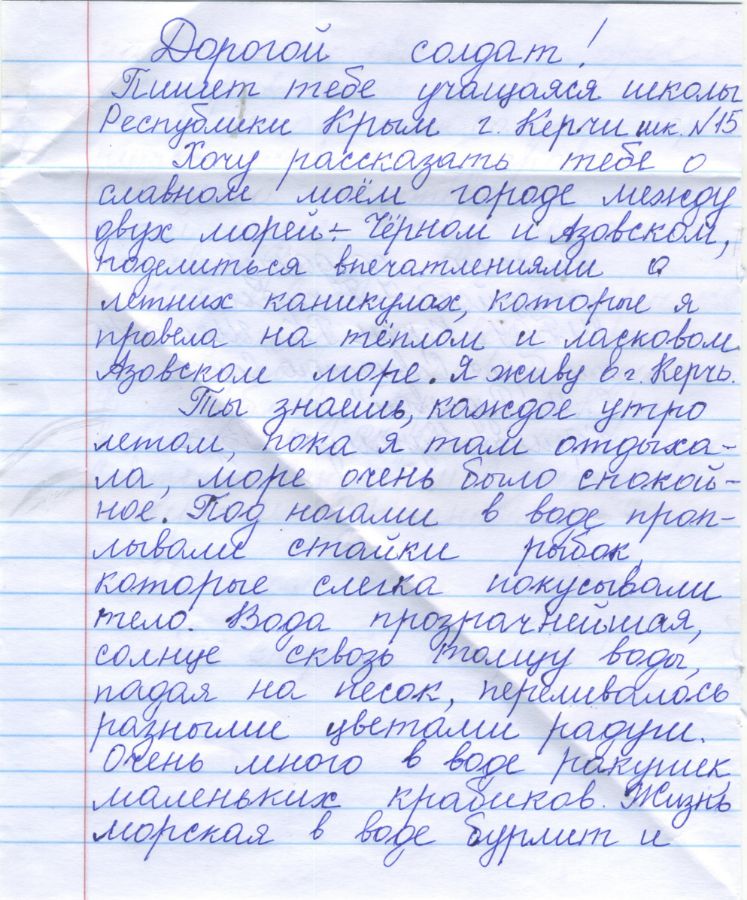 Дорогой солдат!
Пишет тебе учащаяся школы
Республики Крым г. Керчи шк. №15
Хочу рассказать тебе о
славном моём городе между
двух морей - Чёрном и Азовском,
поделиться впечатлениями о
летних каникулах, которые я
провела на тёплом и ласковом
Азовском море. Я живу в г. Керчь.
Ты знаешь, каждое утро
летом, пока я там отдыха-
ла, море очень было спокой-
ное. Под ногами в воде проп-
лывали стайки рыбок,
которые слегка покусывали
тело. Вода прозрачнейшая,
солнце сквозь толщу воды,
падая на песок, переливалось
разными цветами радуги.
Очень много в воде ракушек
маленьких крабиков. Жизнь
морская в воде бурлит и